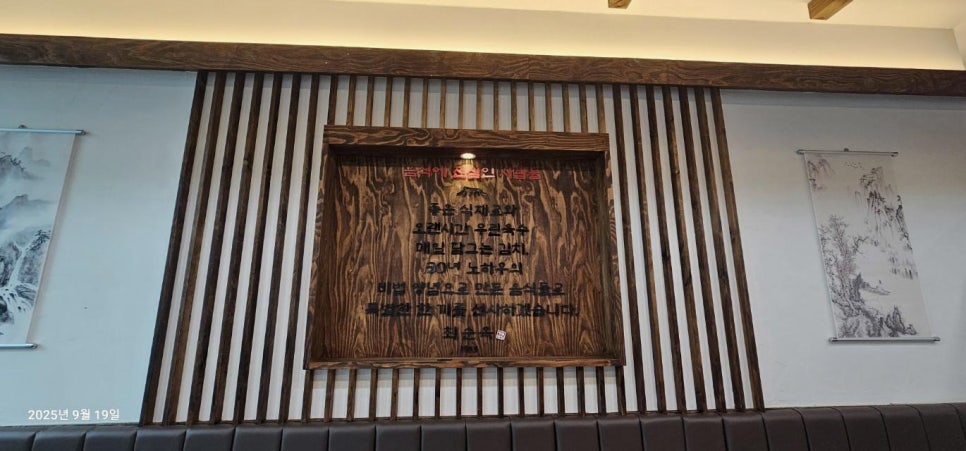 음식에 진심인
좋은 식재료와
오랜시간 우린육수
매일 담그는 김치,
30년 노하우의
비법 양념으로 만든 음식들로
특별한 한 끼를 선사하겠습니다.
최순옥
2025년 9월 19일